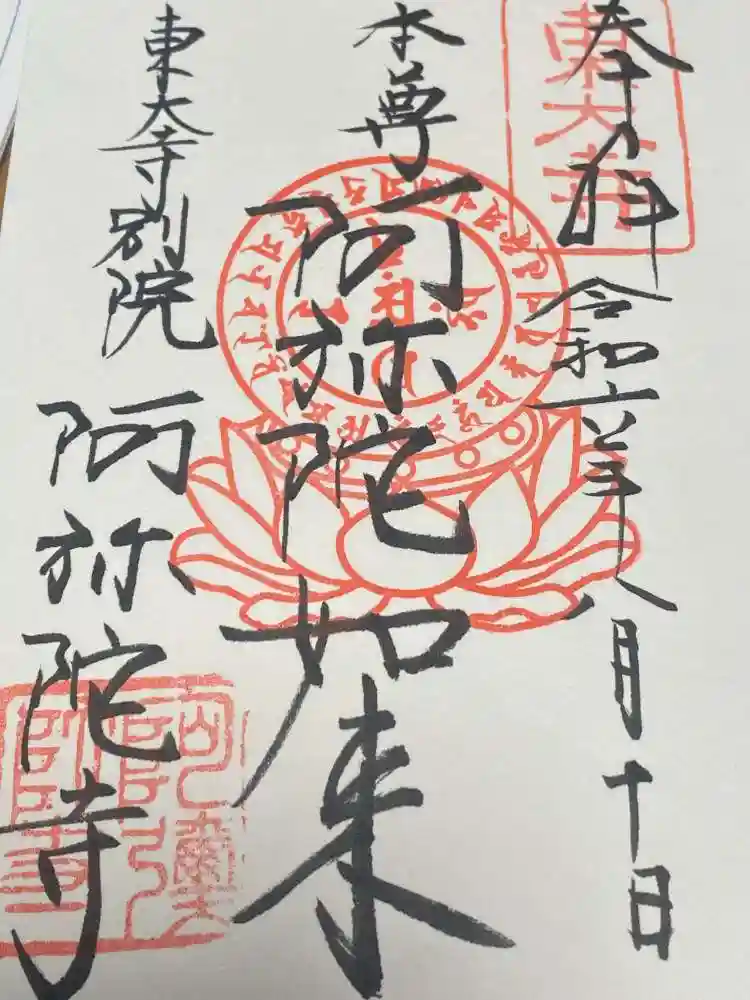 奉拝 令和六年八月十日
東大寺
本尊 阿弥陀如来
東大寺別院 阿弥陀寺